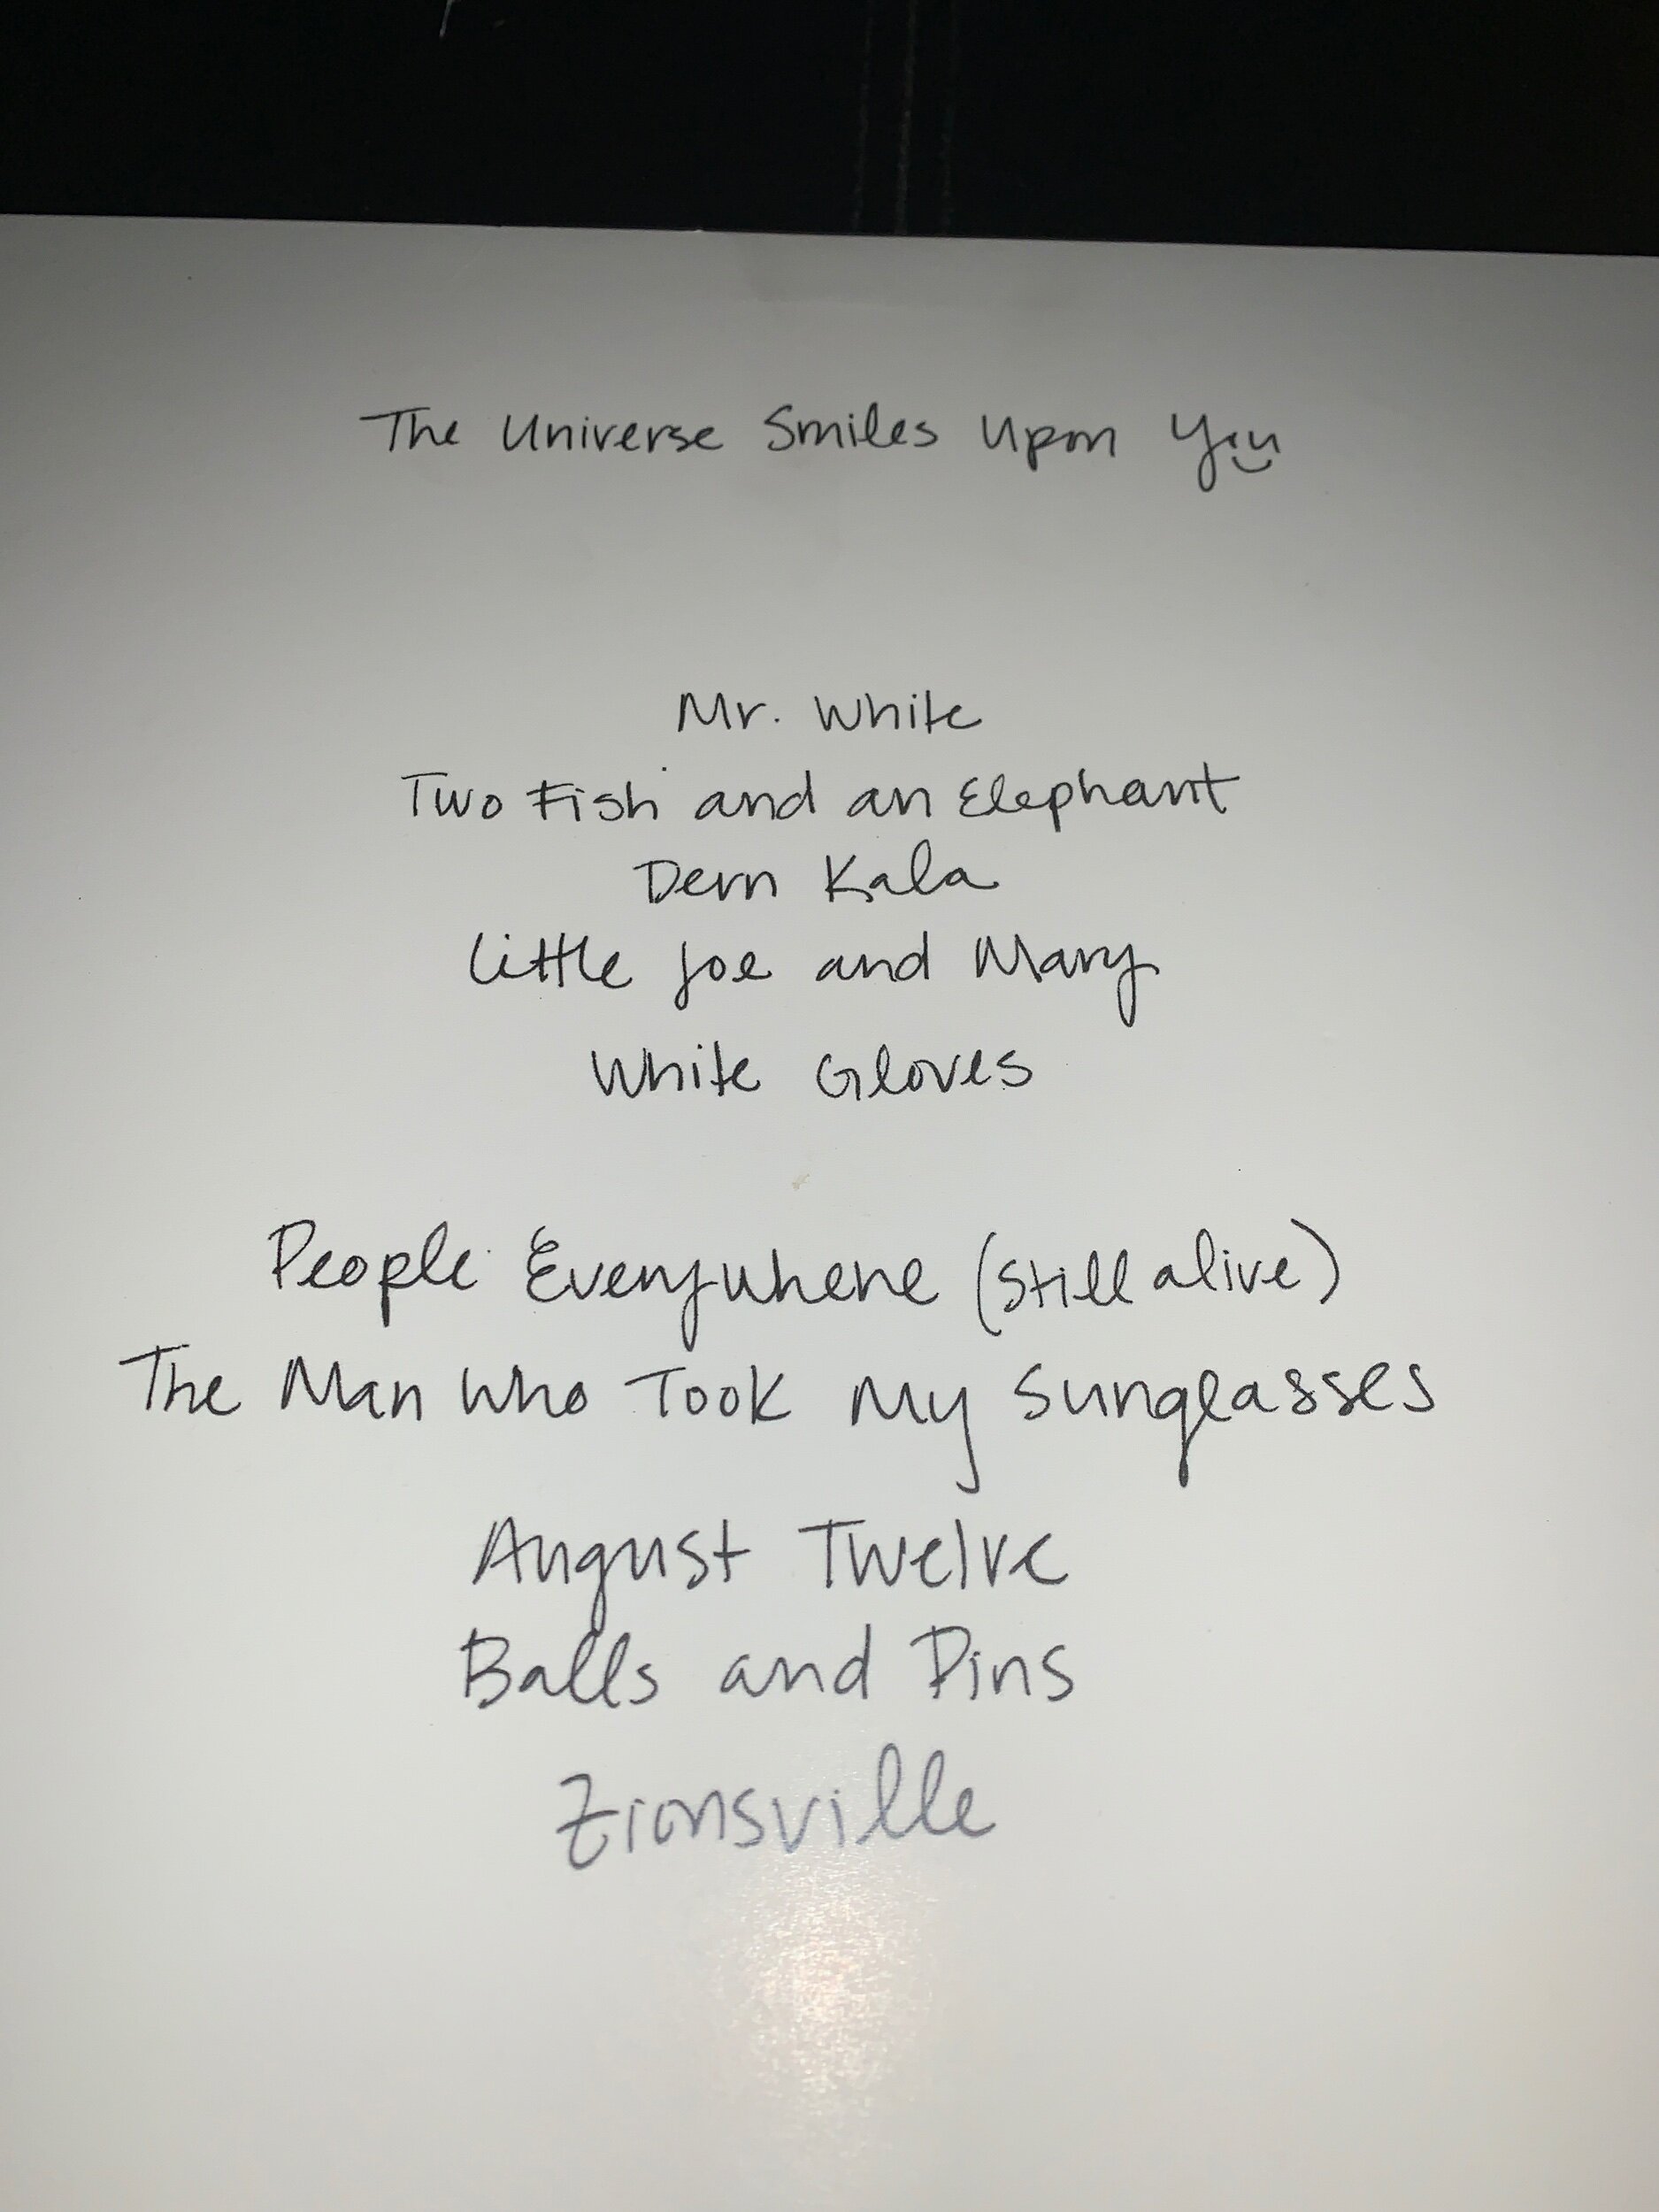 The Universe Smiles Upon You
Mr. White
Two Fish and an Elephant
Dern Kala
Little Joe and Mary
White Gloves
People Everywhere (Still alive)
The Man Who Took My Sunglasses
August Twelve
Balls and Pins
Zionsville